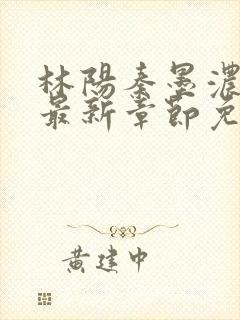 林陽秦墨濃
最新章節免
黄建中